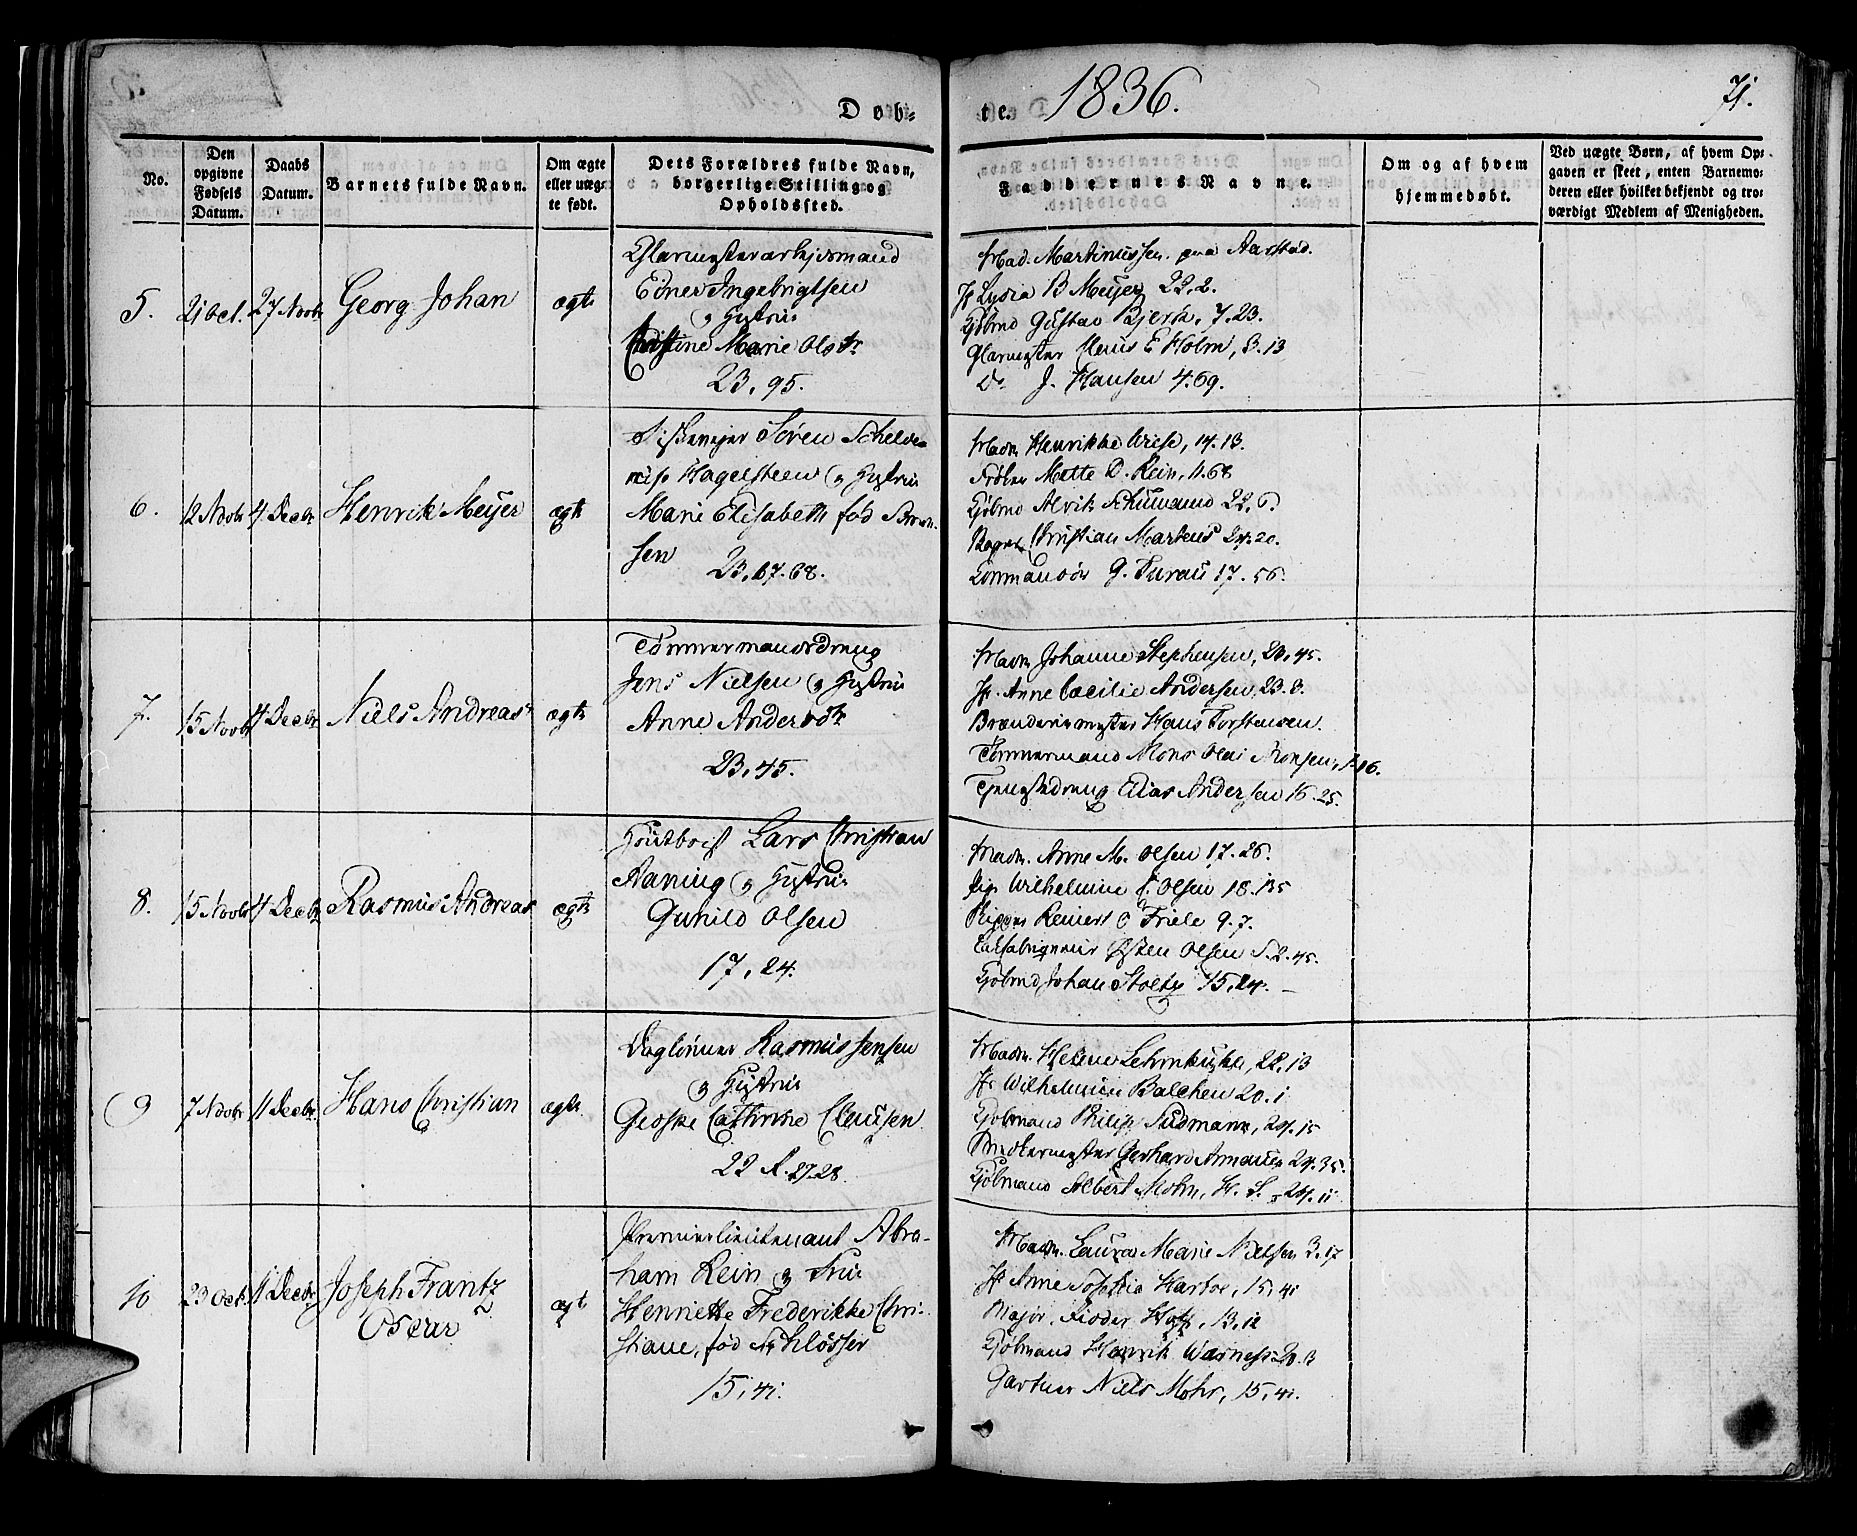 Døb-
te.
1836.
71.
No.
Den
opgivne
Fødsels
Datum.
Daabs
Datum.
Barnets fulde Navn.
Om ægte
eller uæg-
te født.
Dets Forældres fulde Navn,
borgerlige Stilling og
Opholdssted.
Faddernes Navne.
Om og af hvem
hjemmedøbt.
Ved uægte Børn, af hvem Op-
gaven er skeet, enten Barnemo-
deren eller hvilket bekjendt og tro-
værdigt Medlem af Menigheden.
5.
21 Oct.
27 Novbr
Georg Johan
ægte
Ingebrigtsen
og Hustrue
Christine Marie Olsdtr
23, 95.
Mad. Martinussen paa Aarstad.
Jf Lydia B Meijer 22, 2.
Kjøbmd Gustav Bjerk, 7.23.
Glarmester Claus E Holm, 8.13
Do J. Hansen 4.69.
6.
12 Novbr
4 Decbr
Henrik Meijer
ægte
Søren
Hagelsteen og Hustrue
Marie Elisabeth fød
sen
23, 67.68.
Madm Henrikke Wiese, 14.13.
Frøken Mette D. Rein, 11.68
Kjøbmd Alvik Schumand 22,
Bager Christian Martens 24.20.
G. Turau 17. 56.
7.
15 Novbr
4 Decbr
Niels Andreas
ægte
Tømmermandsdreng
Jens Nielsen og Hustrue
Anne Andersdtr
23, 45.
Madm Johanne Stephensen, 23, 45.
Jf. Anne Cæcilie Andersen, 23.8.
Brænderiemester Hans Torstensen.
Tømmermand Mons Olai Monsen,
Tjenestedreng Elias Andersen 16.25.
8.
15 Novbr
4 Decbr
Rasmus Andreas
ægte
Houtboist Lars Christian
Aaning og Hustrue
Gunild Olsen
17, 24.
Madm. Anne M. Olsen 17.26.
Wilhelmine Olsen 18.
Reinert Friele 9.7.
Østen Olsen S.2.45.
Kjøbmd Johan Stoltz 15,24.
9
7 Novbr
11 Decbr.
Hans Christian
ægte.
Daglønner Rasmus Jensen
og Hustrue
Geske Cathrine Clausen
22 27.28.
Madm. Helene Lehmkuhl, 22,13
Jf Wilhelmine Balchen 20.1
Kjøbmand Philip Sudmann, 24.15
Snedkermester Gerhard Armauer 24.35.
Kjøbmand Albert Mohn, 24.11
10
23 Oct.
11 Decbr
Joseph Frantz
Oscar
ægte
Premierlieutenant Abra-
ham Rein og Frue
Henriette Frederikke Chri-
stiane, fød Schlösser
15, 41.
Madm. Laura Marie Nielsen 3.17
Jf Anne Sophia Hartoe, 15,41
Major, 13,12
Kjøbmand Henrik
Gartner Niels Mohr, 15,41.